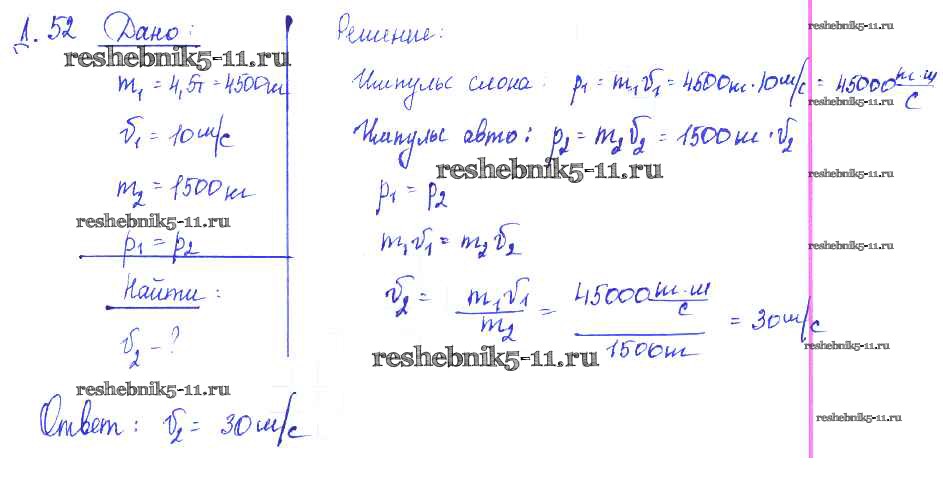 Д. 52 Дано:
reshebnik5-11.ru
m₁ = 4,5т = 4500кг
v₁ = 10м/с
m₂ = 1500кг
reshebnik5-11.ru
p₁ = p₂
Найти:
v₂ - ?
reshebnik5-11.ru
Решение:
reshebnik5-11.ru
Импульс слона: p₁ = m₁v₁ = 4500кг·10м/с = 45000 кг·м/с
reshebnik5-11.ru
Импульс авто: p₂ = m₂v₂ = 1500кг·v₂
reshebnik5-11.ru
reshebnik5-11.ru
p₁ = p₂
m₁v₁ = m₂v₂
reshebnik5-11.ru
v₂ = m₁v₁/m₂ = 45000кг·м/с / 1500кг = 30м/с
reshebnik5-11.ru
reshebnik5-11.ru
reshebnik5-11.ru
reshebnik5-11.ru
Ответ: v₂ = 30м/с